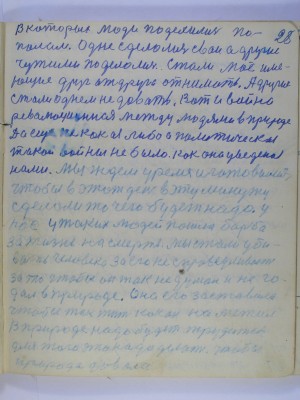 28
которых люди поделились по-
полам. Одне сделались свои а другие
чужими поделолись. Стали моё име-
нущие друг от друга отнимать. А другие
стали однем недовать. Вот и война
революционная между людями в природе
Да еще не какая либо а политическая
такой войны не было. как она уведена
нами. Мы ждем время
чтобы в этот день в эту минуту
сделали то чего будет надо у
нас у таких людей пошла борьба
за жизнь на смерть. мы стали уби-
вать человека за его не справедливость
за то чтобы он так не думал и не
дал в природе. Она его заставила
чтобы так
в природе надо будет трудится
для того это надо делать. чтобы
природе